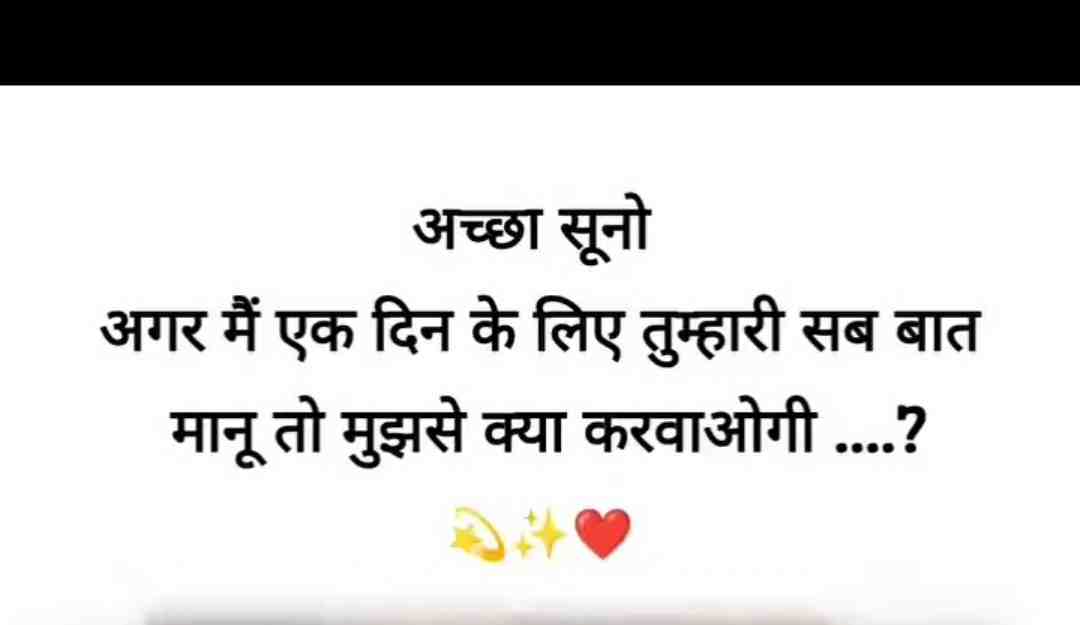 अच्छा सूनो
अगर मैं एक दिन के लिए तुम्हारी सब बात
मानू तो मुझसे क्या करवाओगी ....?
💫✨❤️